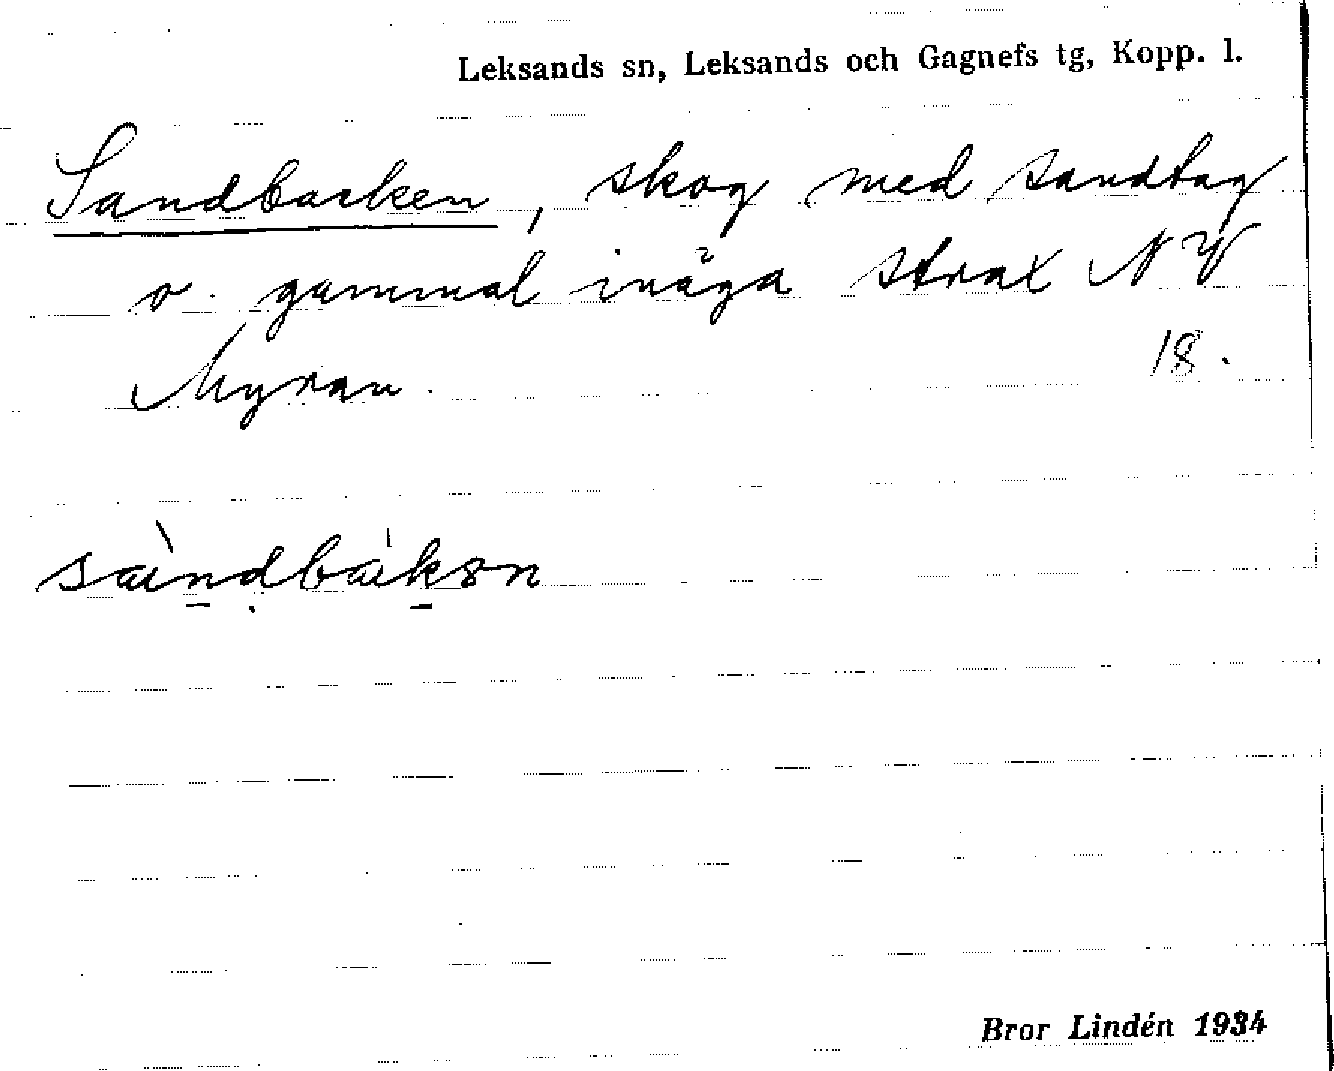 Leksands sn, Leksands och Gagnefs tg, Kopp. l.
Sandbacken, skog med sandtag
o. gammal inäga strax NV
Myran. 18.
sàndbákən
Bror Lindén 1934